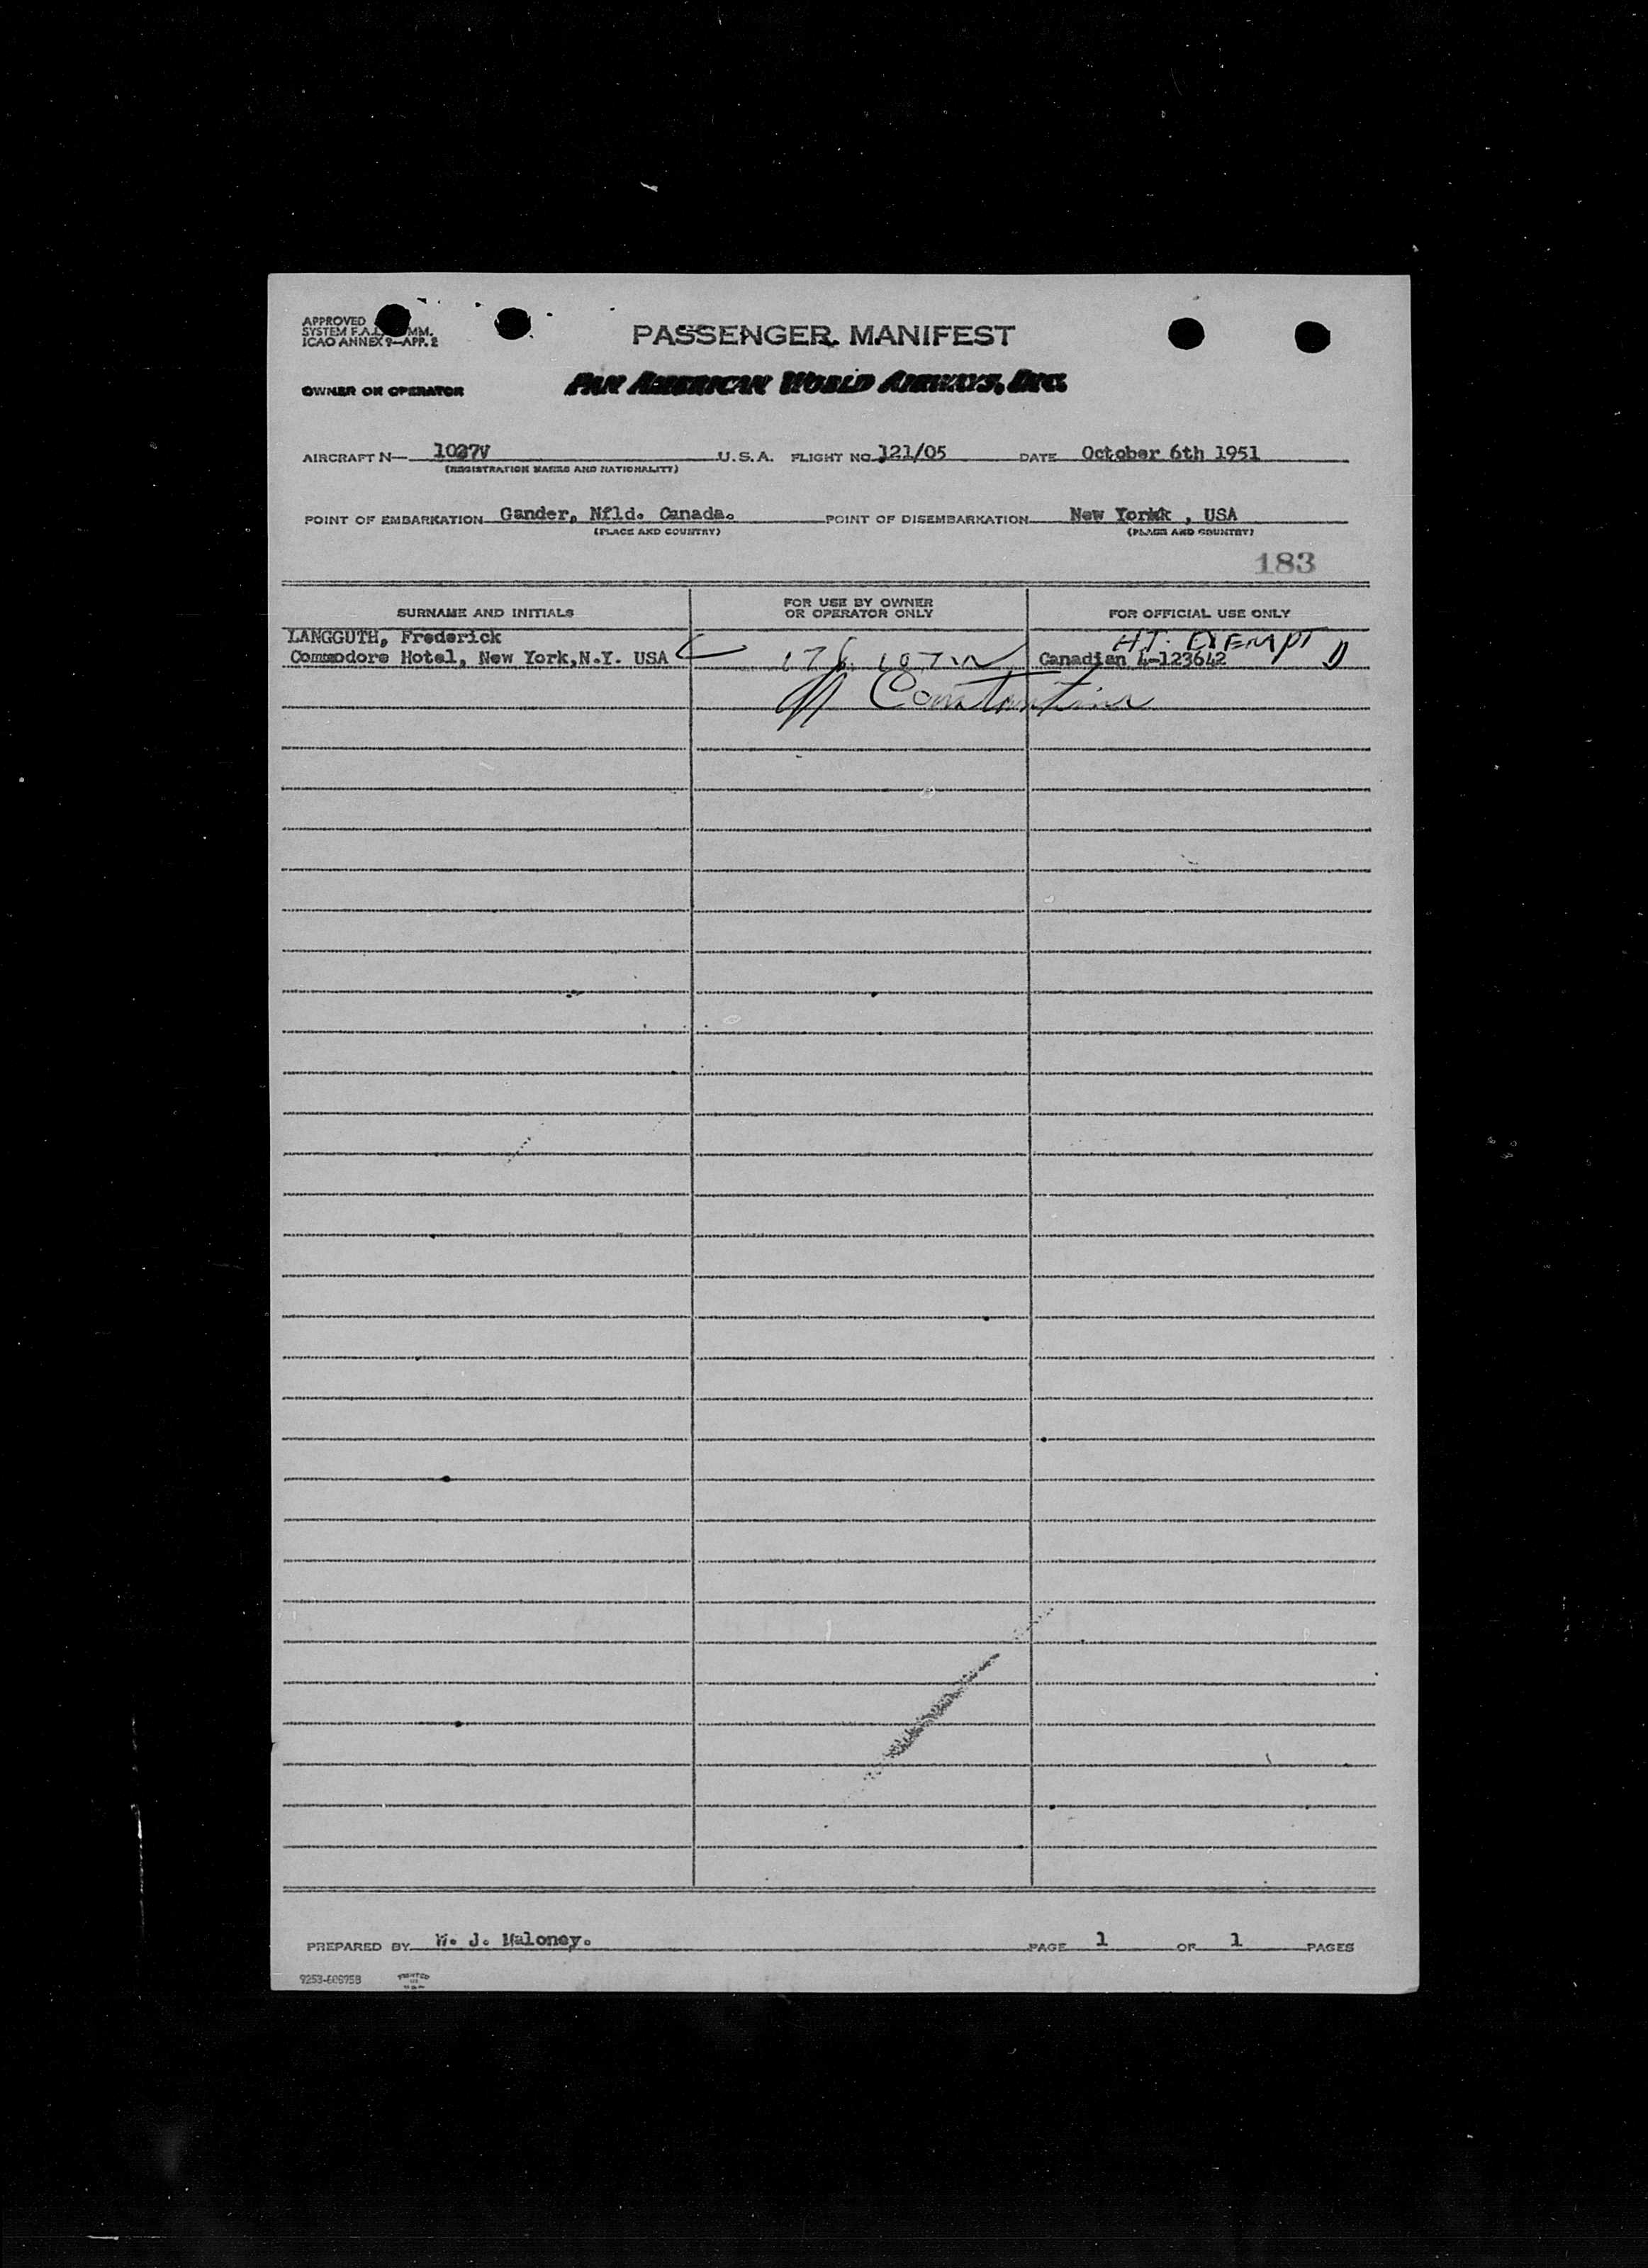 APPROVED
SYSTEM F.A.L. COMM.
ICAO ANNEX 9—APP. 2
PASSENGER MANIFEST
OWNER OR OPERATOR PAN AMERICAN WORLD AIRWAYS, INC.
AIRCRAFT N— 1027V U.S.A. FLIGHT NO. 121/05 DATE October 6th 1951
(REGISTRATION MARKS AND NATIONALITY)
POINT OF EMBARKATION Gander, Nfld. Canada. POINT OF DISEMBARKATION New Yorkk , USA
(PLACE AND COUNTRY) (PLACE AND COUNTRY)
183
SURNAME AND INITIALS FOR USE BY OWNER OR OPERATOR ONLY FOR OFFICIAL USE ONLY
LANGGUTH, Frederick H.T. EXEMPT
Commodore Hotel, New York,N.Y. USA Canadian 4-123642
Constantine
PREPARED BY W. J. Maloney. PAGE 1 OF 1 PAGES
PRINTED
IN
U.S.A.